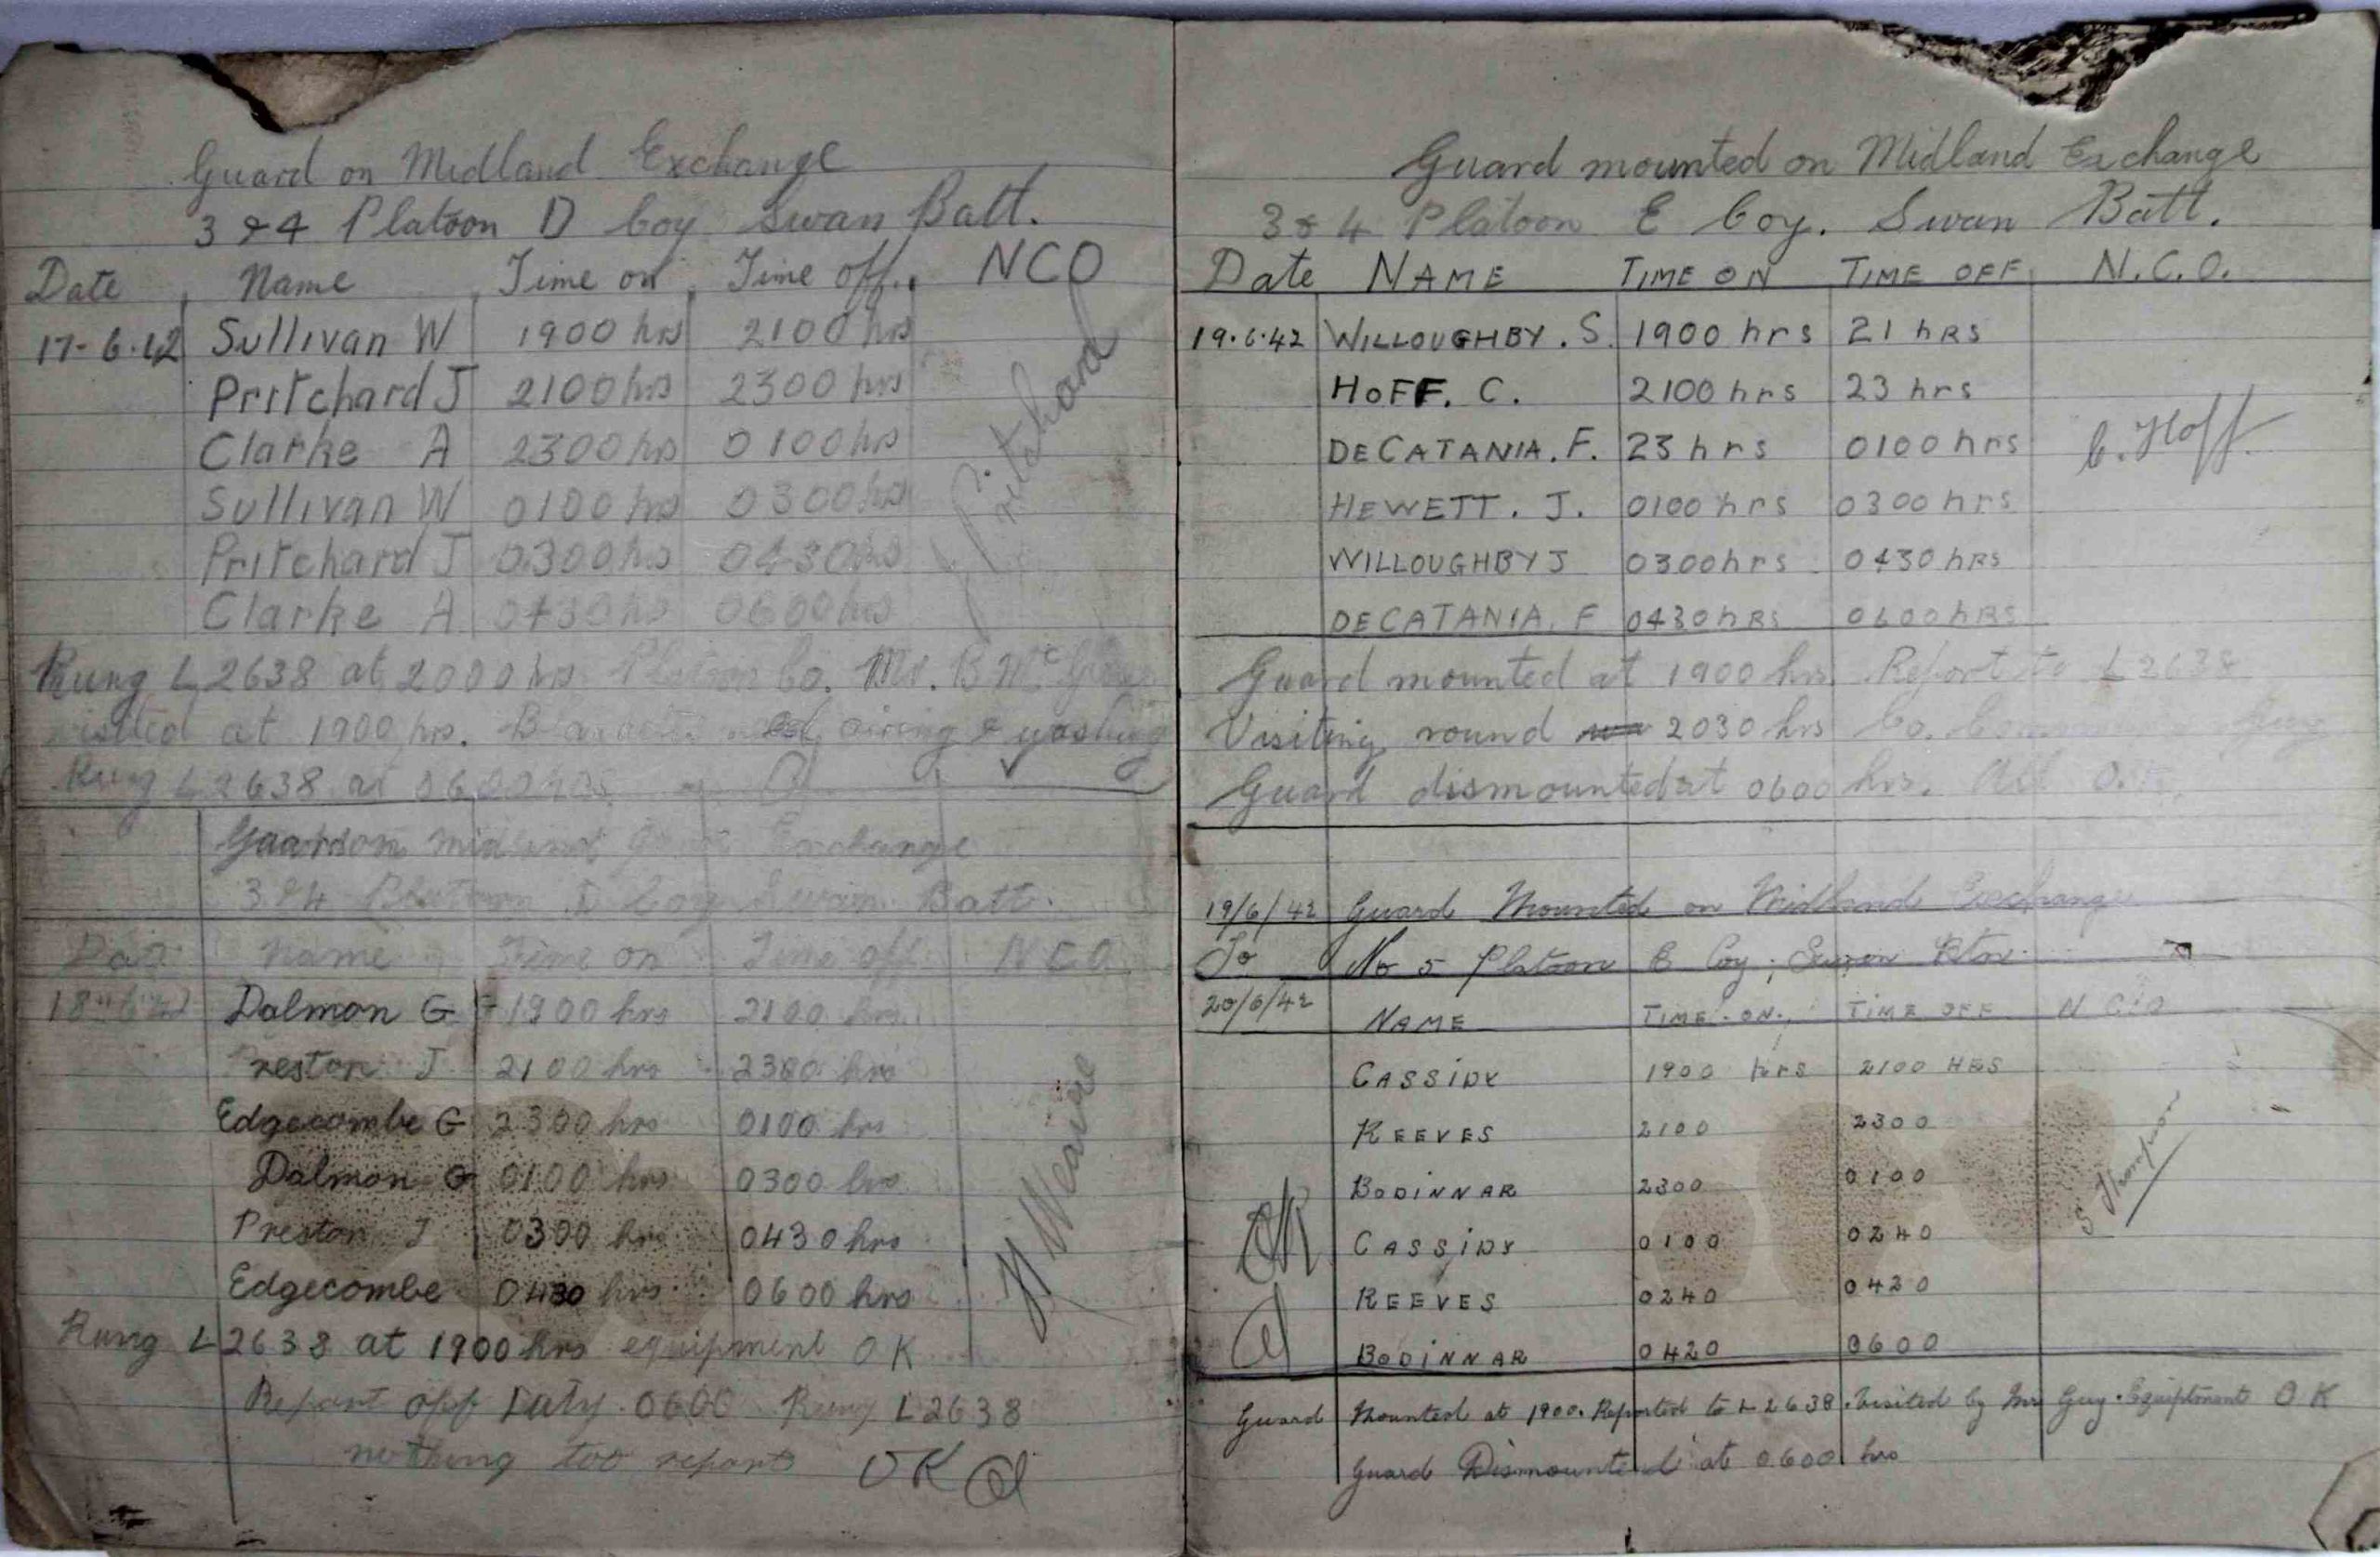 Guard on Midland Exchange
3 & 4 Platoon D Coy Swan Batt.
Date Name Time on Time off NCO
17-6-42 Sullivan W 1900 hrs 2100 hrs
Pritchard J 2100 hrs 2300 hrs
Clarke A 2300 hrs 0100 hrs
Sullivan W 0100 hrs 0300 hrs
Pritchard J 0300 hrs 0430 hrs
Clarke A 0430 hrs 0600 hrs
J Pritchard
Rung L2638 at 2000 hrs Platoon Co. Mr. B Mc
visited at 1900 hrs. airing & washing
Rung L2638 at 0600 hrs
Guard on Midland Exchange
3 & 4 Platoon D Coy Swan Batt.
Date Name Time on Time off NCO
18-6-42 Dalmon G 1900 hrs 2100 hrs
Preston J 2100 hrs 2300 hrs
Edgecombe G 2300 hrs 0100 hrs
Dalmon G 0100 hrs 0300 hrs
Preston J 0300 hrs 0430 hrs
Edgecombe 0430 hrs 0600 hrs
Rung L2638 at 1900 hrs equipment OK
Report off Duty 0600 Rung L2638
nothing too report OK
Guard mounted on Midland Exchange
3 & 4 Platoon E Coy. Swan Batt.
Date NAME TIME ON TIME OFF N.C.O.
19.6.42 WILLOUGHBY. S. 1900 hrs 21 hRS
HOFF. C. 2100 hrs 23 hrs
DECATANIA. F. 23 hrs 0100 hrs C. Hoff.
HEWETT. J. 0100 hrs 0300 hrs
WILLOUGHBY J 0300 hrs 0430 hRS
DECATANIA. F 0430 hRS 0600 hRS
Guard mounted at 1900 hrs. Report to L2638
Visiting round 2030 hrs Co. Guy
Guard dismounted at 0600 hrs. All O.K.
19/6/42 Guard Mounted on Midland Exchange
To No 5 Platoon E Coy; Swan Btn.
20/6/42 NAME TIME. ON. TIME OFF N C O
CASSIDY 1900 hrs 2100 HRS
REEVES 2100 2300
BODINNAR 2300 0100
S Thompson
OK CASSIDY 0100 0240
REEVES 0240 0420
BODINNAR 0420 0600
Guard Mounted at 1900. Reported to L2638. Visited by Mr Guy. Equiptment OK
Guard Dismounted at 0600 hrs